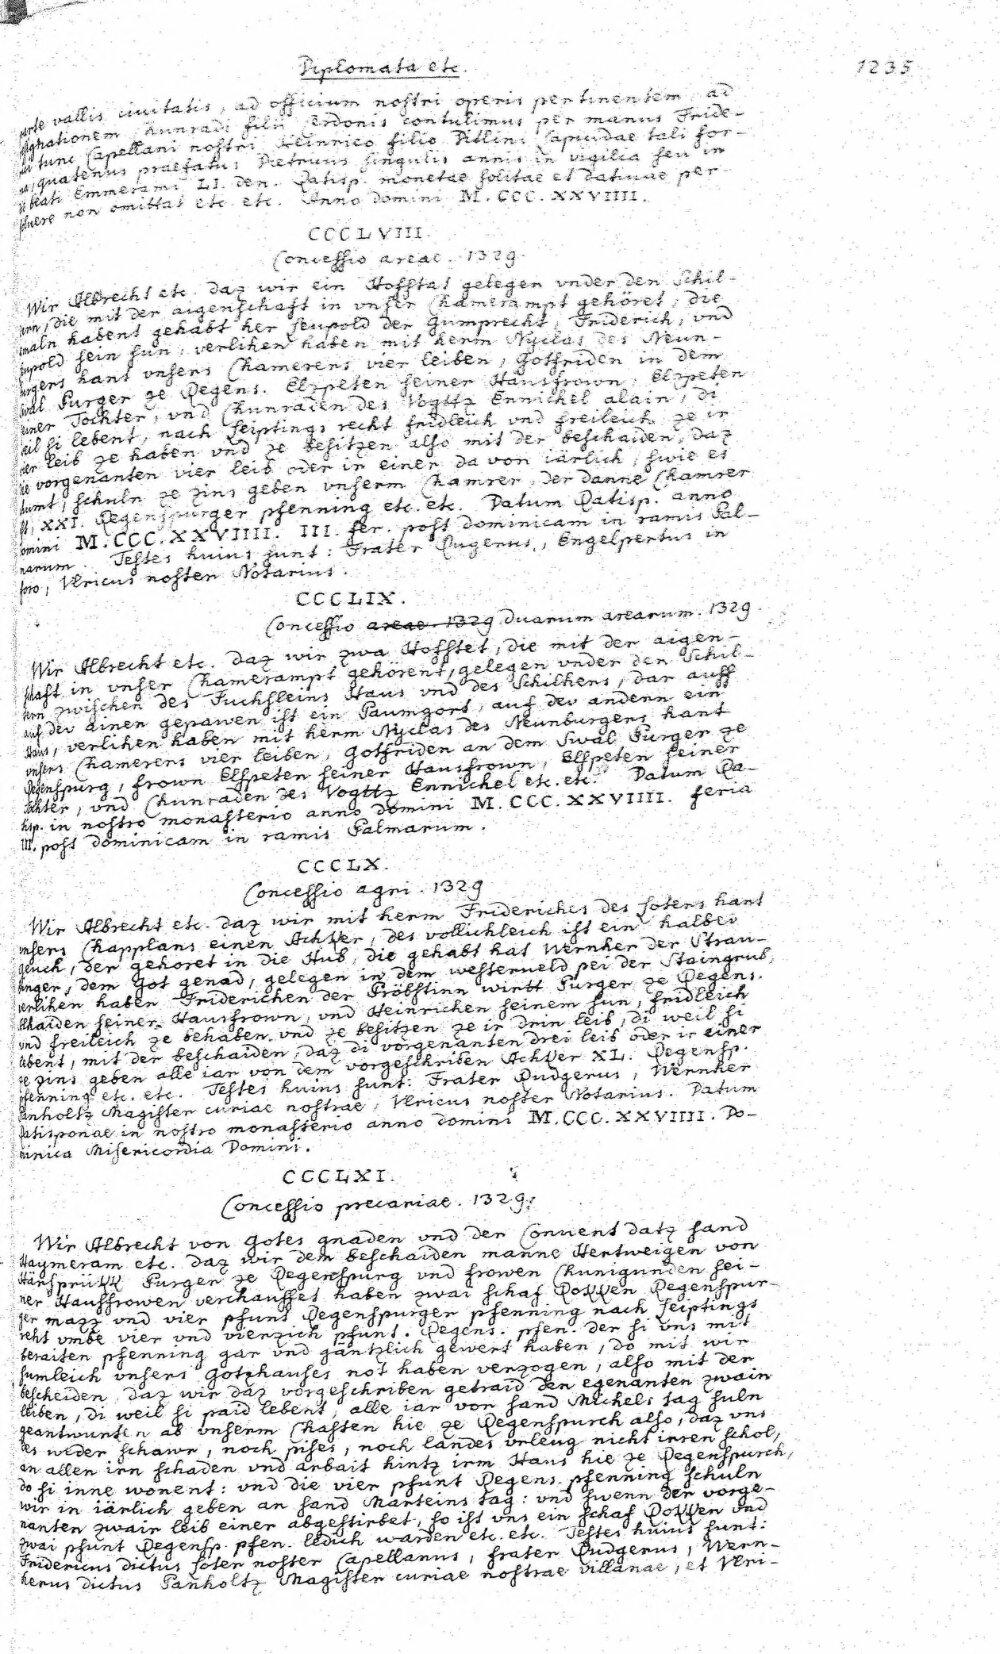 Diplomata etc. 1235
parte vallis civitatis, ad officium nostri operis pertinentem, ad
signationem Chunradi filii Perdonis contulimus per manus Fride-
rici tunc Capellani nostri Heinrico filio Ditlini Lapicidae tali for-
ma, quatenus praefatus Dietricus singulis annis in vigilia seu in
die beati Emmerami LI. den. Ratisp. monetae solitae et dativae per-
solvere non omittat etc. etc. Anno domini M. CCC. XXVIIII.
CCCLVIII.
Concessio areae. 1329.
Wir Albrecht etc. daz wir ein Hofstat gelegen vnder den Schil-
tern, die mit der aigenschaft in vnser Chamerampt gehöret, die
emaln habent gehabt her Leupold der Gumprecht, Friderich, vnd
Leupold sein sun, verlihen haben mit herm Nyclas des Neun-
burgers hant vnsers Chamerers vier leiben, Gotfriden in dem
Swal Purger ze Regens. Elzpeten seiner Hausfrown, Elzpeten
seiner Tochter, vnd Chunraden des Vogttz Ennichel alain, di
weil si lebent, nach Leiptings recht fridleich vnd freileich ze ir
vier leib ze haben vnd ze besitzen also mit der beschaiden, daz
die vorgenanten vier leib oder ir einer da von iärlich, swie es
chumt, schuln ze zins geben vnserm Chamrer, der danne Chamrer
ist, XXI. Regenspurger pfenning etc. etc. Datum Ratisp. anno
domini M. CCC. XXVIIII. III. fer. post dominicam in ramis Pal-
marum. Testes huius sunt: Frater Rugerus, Engelpertus in
foro, Vlricus noster Notarius.
CCCLIX.
Concessio areae. 1329 duarum arearum. 1329.
Wir Albrecht etc. daz wir zwa Hofstet, die mit der aigen-
schaft in vnser Chamerampt gehörent, gelegen vnder den Schil-
tern zwischen des Fuchsleins Haus vnd des Schilhens, dar auff
auf der ainen gepawen ist ein Paumgort, auf der andern ein
Haus, verlihen haben mit herm Nyclas des Neunburgers hant
vnsers Chamerers vier leiben, Gotfriden an dem Swal Purger ze
Regenspurg, frown Elspeten seiner Hausfrown, Elspeten seiner
tochter, vnd Chunraden des Vogttz Ennichel etc. etc. Datum Ra-
tisp. in nostro monasterio anno domini M. CCC. XXVIIII. feria
III. post dominicam in ramis Palmarum.
CCCLX.
Concessio agri. 1329
Wir Albrecht etc. daz wir mit herm Frideriches des Loters hant
vnsers Chapplans einen Achker, des vollichleich ist ein halbei
geuch, der gehoret in die Hub, die gehabt hat Wernher der Strau-
binger, dem got genad, gelegen in dem westerueld pei der Staingrub,
verlihen haben Friderichen der Pröbstinn wirtt Purger ze Regens.
Alhaiden seiner Hausfrown, vnd Heinrichen seinem sun, fridleich
vnd freileich ze behaben vnd ze besitzen ze ir drin leib, di weil si
lebent, mit der beschaiden, daz di vorgenanten drei leib oder ir einer
ze zins geben alle iar von dem vorgeschriben Achker XL. Regensp.
pfenning etc. etc. Testes huius sunt: Frater Rudgerus, Wernher
Panholtz Magister curiae nostrae, Vlricus noster Notarius. Datum
Ratisponae in nostro monasterio anno domini M. CCC. XXVIIII. Do-
minica Misericordia Domini.
CCCLXI.
Concessio precariae. 1329.
Wir Albrecht von Gotes gnaden vnd der Convent datz sand
Haymeram etc. daz wir dem beschaiden manne Hertweigen von
Härsprükk Purger ze Regenspurg vnd frowen Chunigunden sei-
ner Hausfrowen verchauffet haben zwai schaf Rokken Regenspur-
ger mazz vnd vier pfunt Regenspurger pfenning nach Leiptings
reht vmbe vier vnd vierzich pfunt. Regens. pfen. der si vns mit
beraiten pfenning gar vnd gäntzlich gewert haben, do mit wir
sumleich vnsers Gotzhauses not haben verzogen, also mit der
bescheiden, daz wir daz vorgeschriben getraid den egenanten zwain
leiben, di weil si paid lebent, alle iar von sand Michels tag suln
geantwurten ab vnserm Chasten hie ze Regenspurch also, daz vns
des weder schawr, noch pises, noch landes vrleug nicht irren schol,
an allen irn schaden vnd arbait hintz irm Haus hie ze Regenspurch,
do si inne wonent: vnd die vier pfunt Regens. pfenning schuln
wir in iärlich geben an sand Marteins tag: vnd swenn der vorge-
nanten zwair leib einer abgestirbet, so ist vns ein schaf Rokken vnd
zwai pfunt Regensp. pfen. ledich warden etc. etc. Testes huius sunt:
Fridericus dictus Loter noster Capellanus, frater Rudgerus, Wern-
herus dictus Panholtz Magister curiae nostrae villanae, et Vlri-